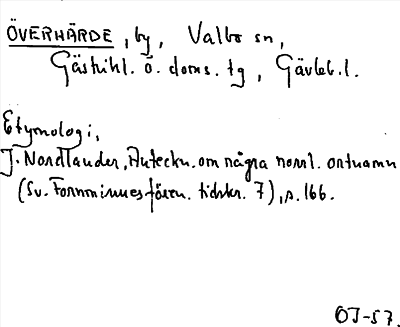 ÖVERHÄRDE, by, Valbo sn,
Gästrikl. ö. doms. tg, Gävleb. l.
Etymologi,
J. Nordlander, Anteckn. om några norrl. ortnamn
(Sv. Fornminnesfören. tidskr. 7), s. 166.
OJ-57.